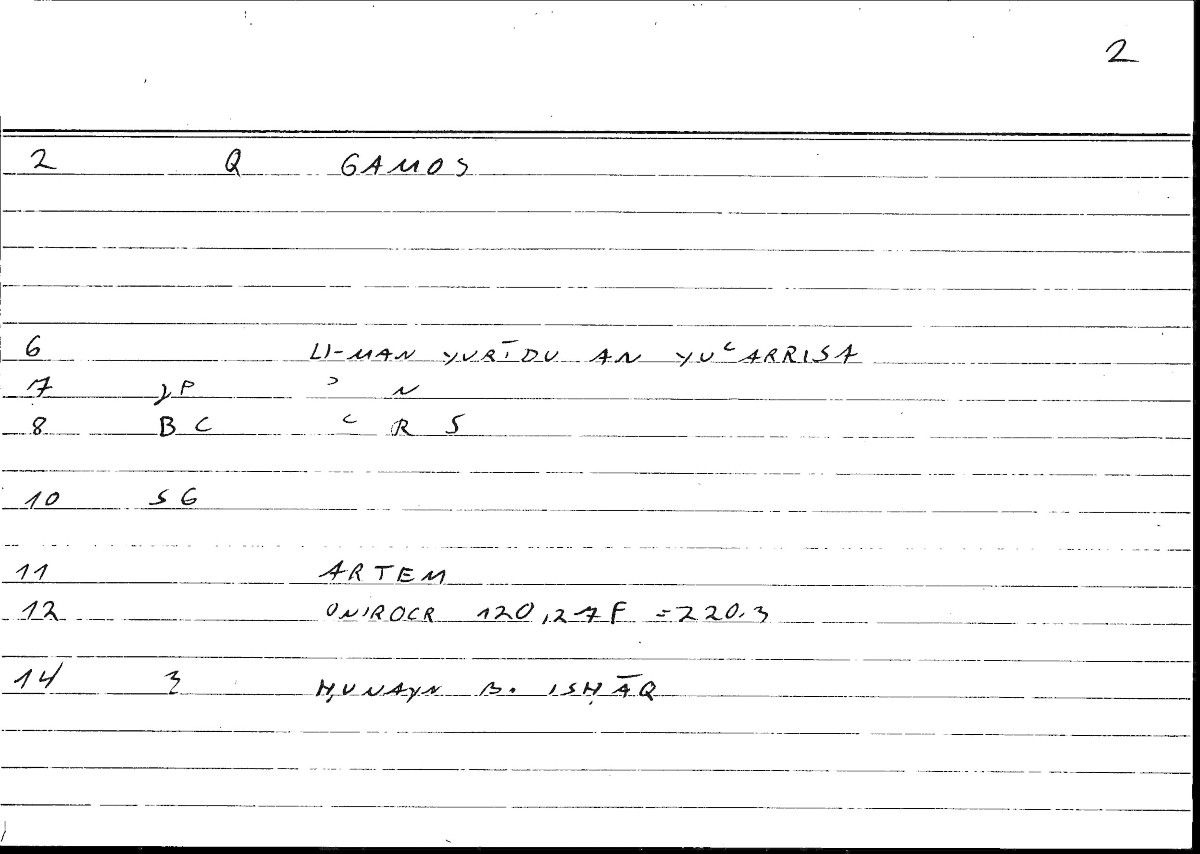 2
2 Q GAMOS
6 LI-MAN YURĪDU AN YUʿARRISA
7 γP ʾ N
8 BC ʿ R S
10 SG
11 ARTEM
12 ONIROCR 120,27F =220.3
14 ʒ ḤUNAYN B. ISḤĀQ